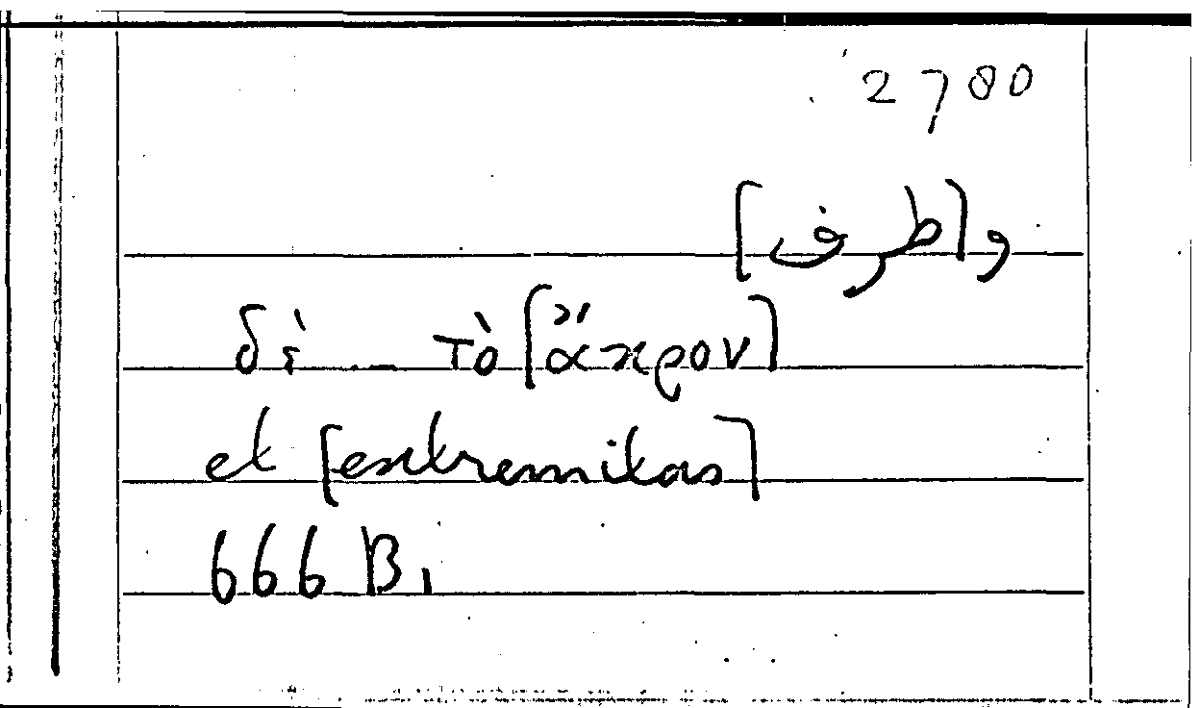 2780
و[طرف]
δὲ ... τὸ [ἄκρον]
et [extremitas]
666 B1